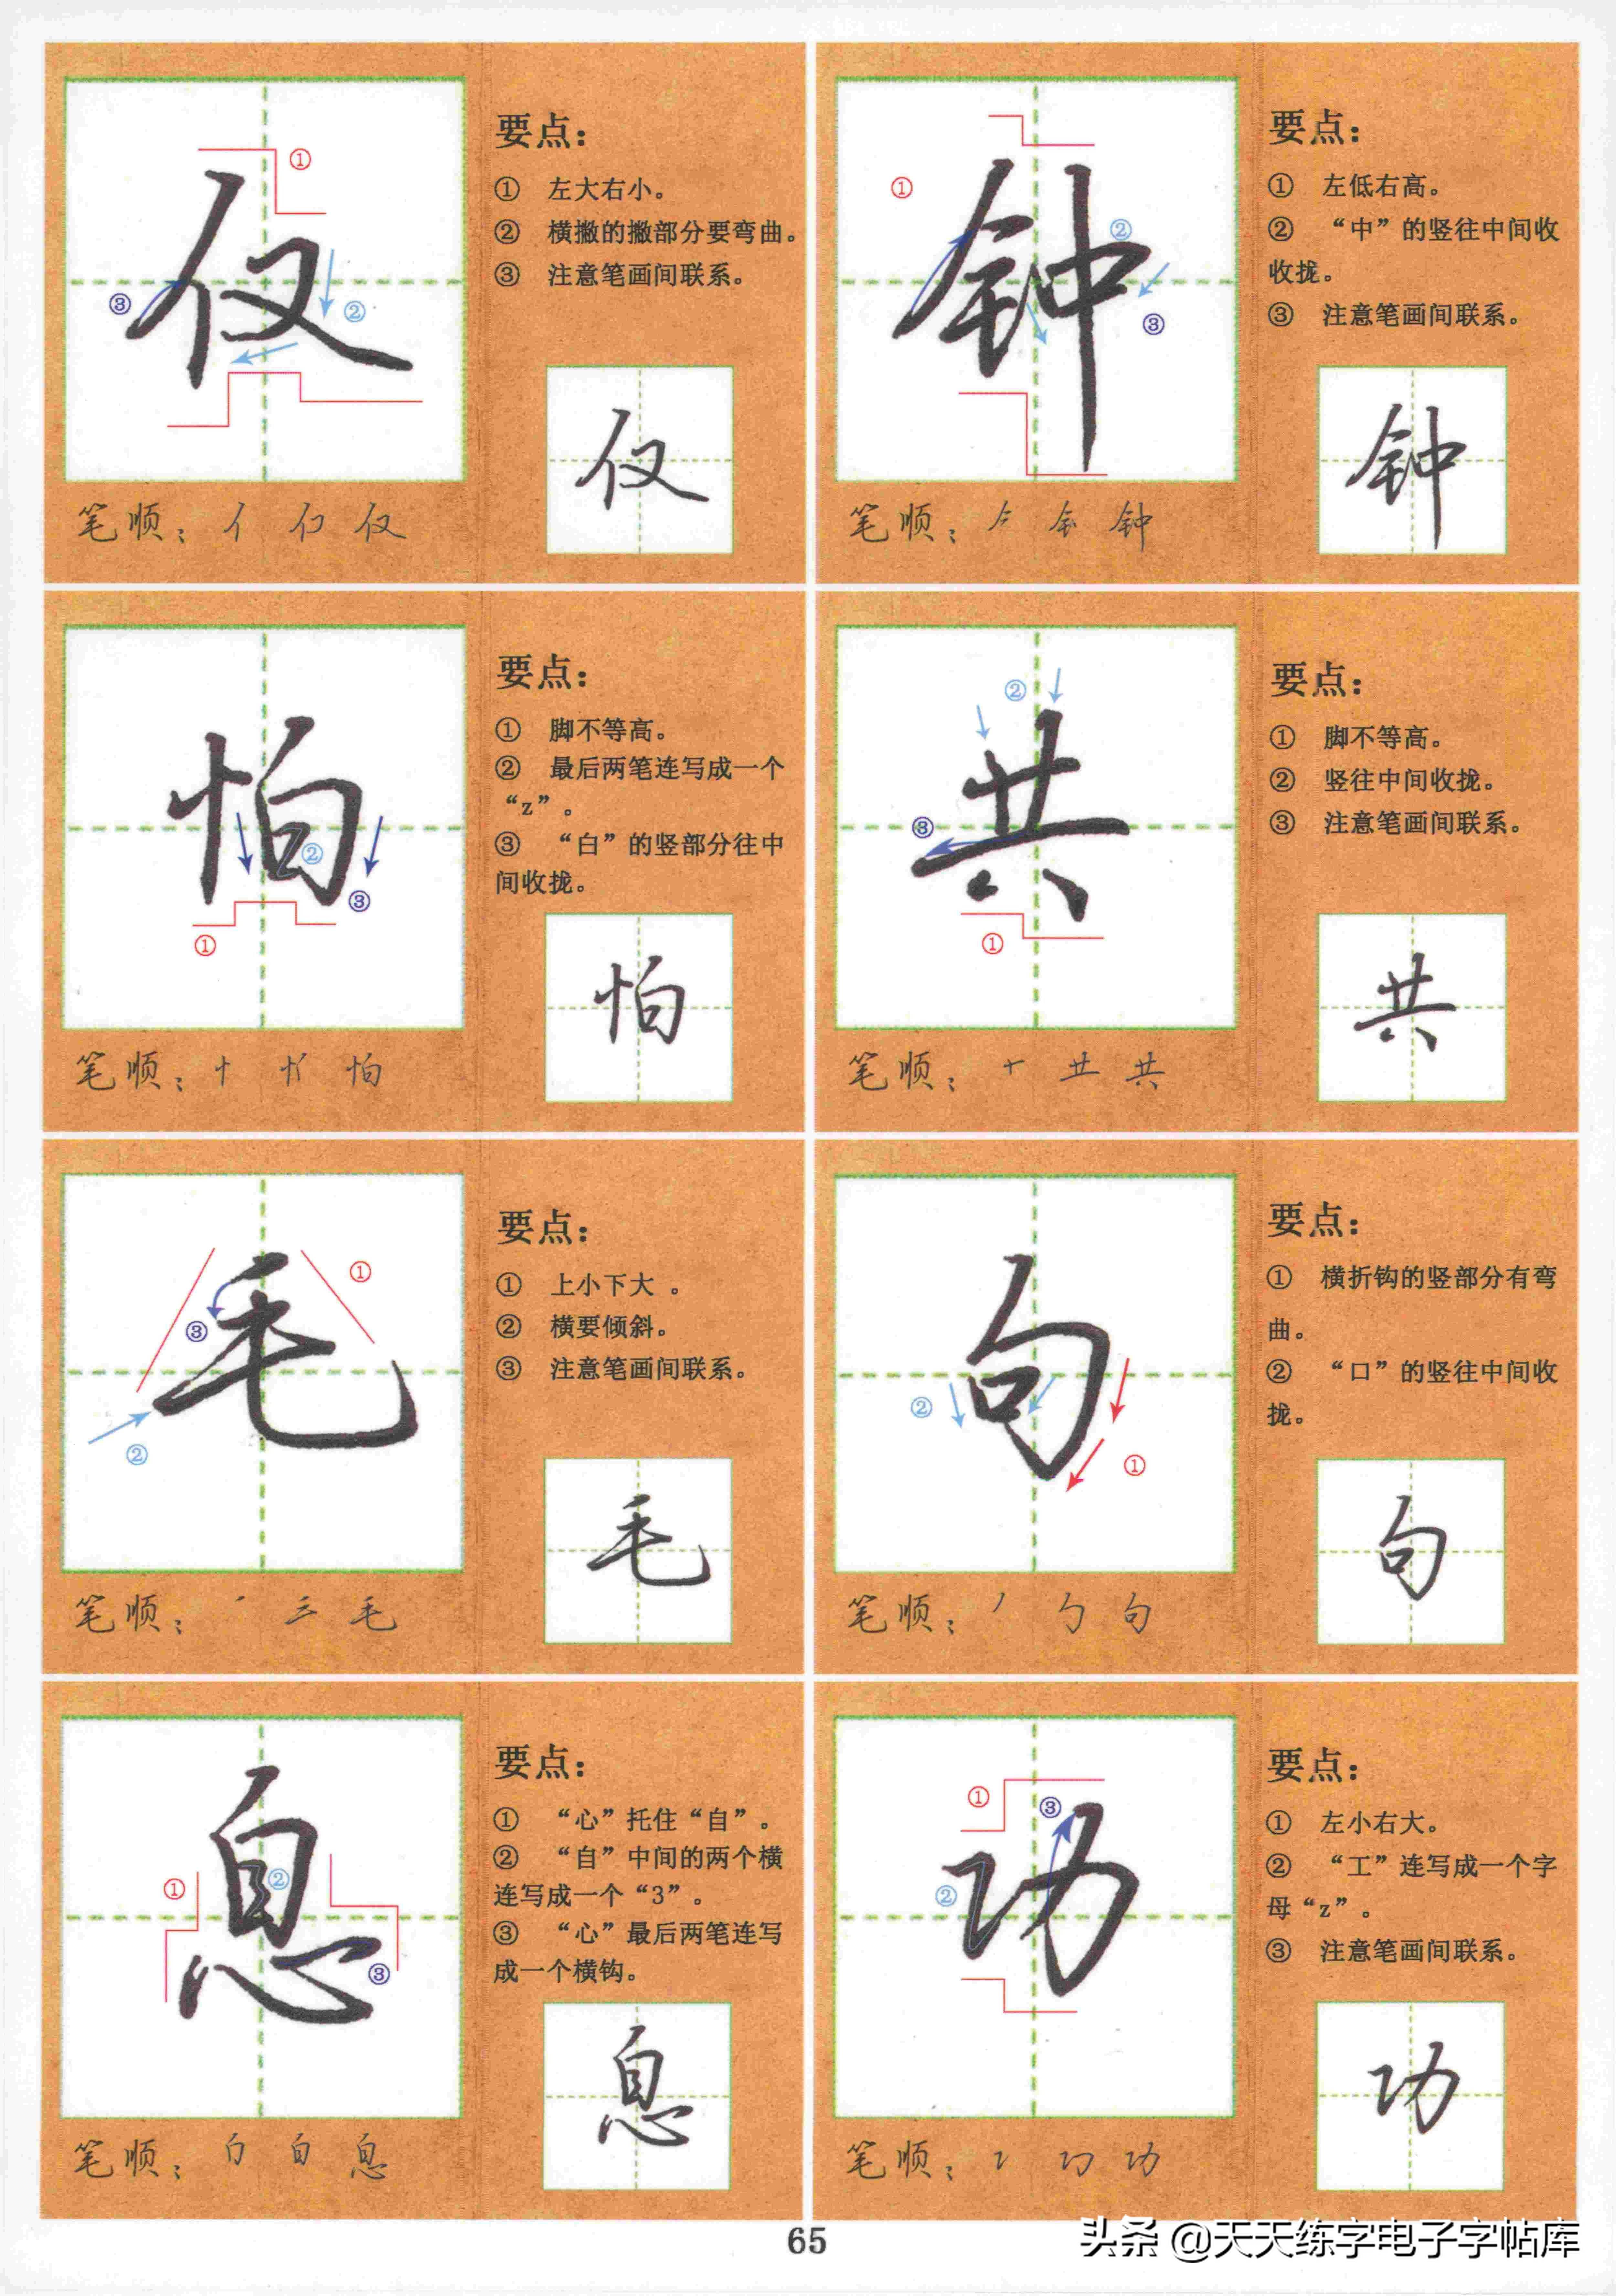 仅
要点：
① 左大右小。
② 横撇的撇部分要弯曲。
③ 注意笔画间联系。
① ② ③
仅
笔顺： 亻 仅
钟
要点：
① 左低右高。
② “中”的竖往中间收
收拢。
③ 注意笔画间联系。
① ② ③
钟
笔顺： 钟
怕
要点：
① 脚不等高。
② 最后两笔连写成一个
“z”。
③ “白”的竖部分往中
间收拢。
① ② ③
怕
笔顺： 怕
共
要点：
① 脚不等高。
② 竖往中间收拢。
③ 注意笔画间联系。
① ② ③
共
笔顺： 十 龷 共
毛
要点：
① 上小下大 。
② 横要倾斜。
③ 注意笔画间联系。
① ② ③
毛
笔顺： 三 毛
句
要点：
① 横折钩的竖部分有弯
曲。
② “口”的竖往中间收
拢。
① ② ②
句
笔顺： 丿 勹 句
息
要点：
① “心”托住“自”。
② “自”中间的两个横
连写成一个“3”。
③ “心”最后两笔连写
成一个横钩。
① ② ③
息
笔顺： 自 息
功
要点：
① 左小右大。
② “工”连写成一个字
母“z”。
③ 注意笔画间联系。
① ② ③
功
笔顺： 功
65
头条 @天天练字电子字帖库